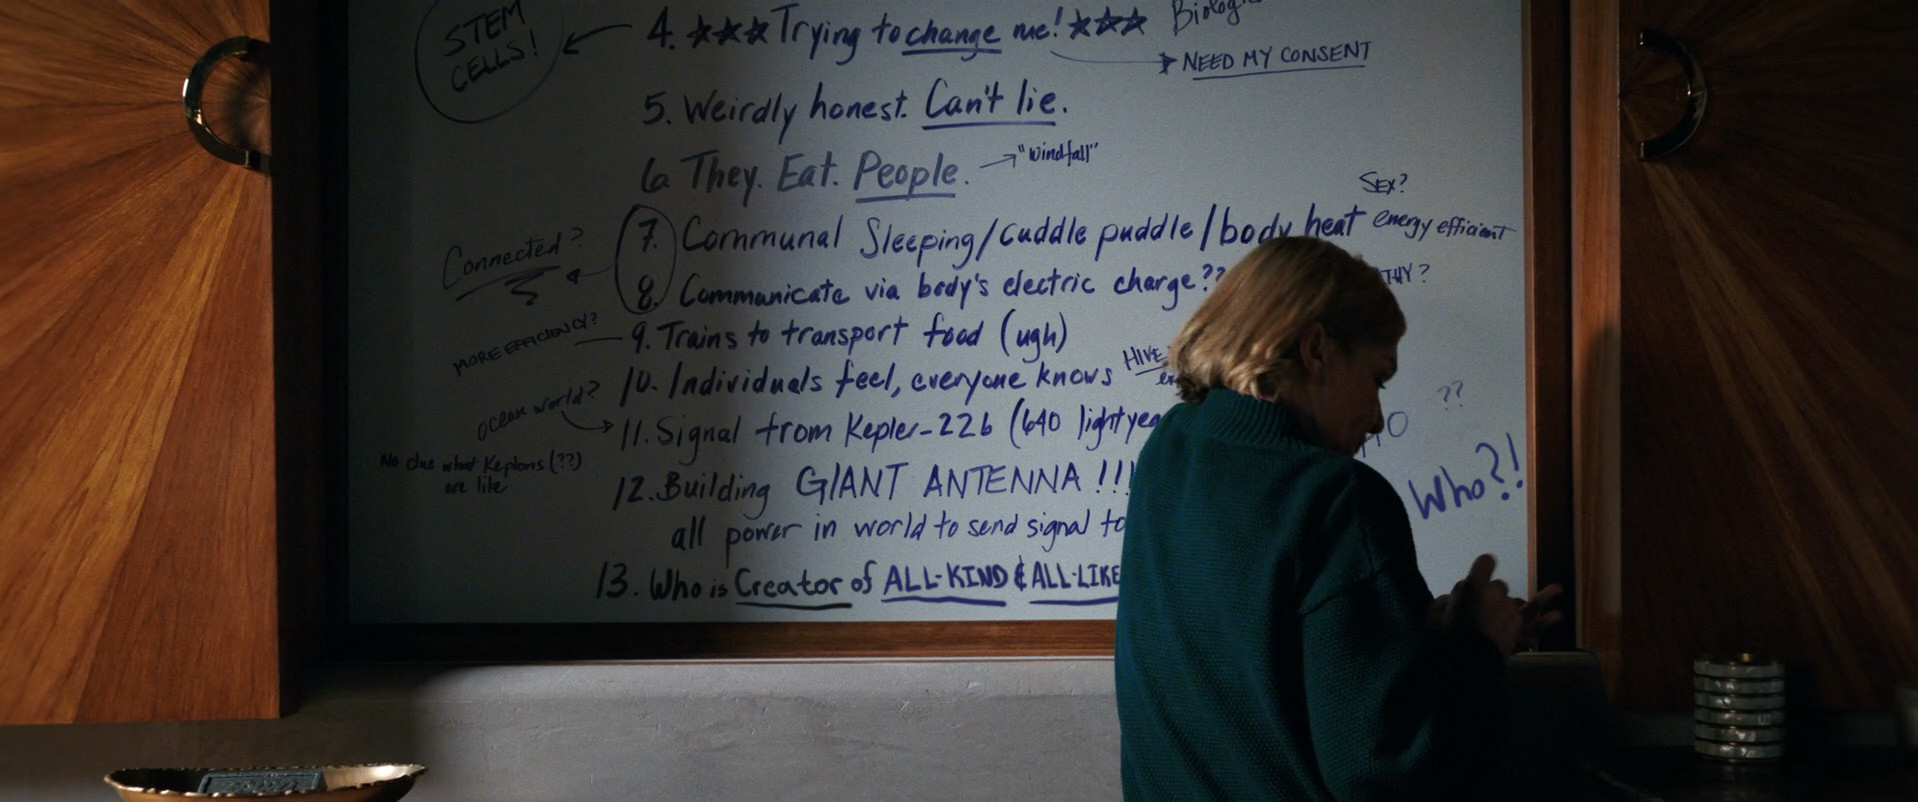 STEM
CELLS!
4. ★★★ Trying to change me! ★★★
NEED MY CONSENT
5. Weirdly honest. Can't lie.
6. They. Eat. People.
"windfall"
Sex?
Connected?
7. Communal Sleeping/cuddle puddle/body heat
energy efficient
8. Communicate via body's electric charge??
MORE EFFICIENCY?
9. Trains to transport food (ugh)
10. Individuals feel, everyone knows
HIVE
Ocean world?
11. Signal from Kepler-22b (640
??
No clue what Keplons (??)
are like
12. Building GIANT ANTENNA!!!
Who?!
all power in world to send signal to
13. Who is Creator of ALL-KIND & ALL-LIKE